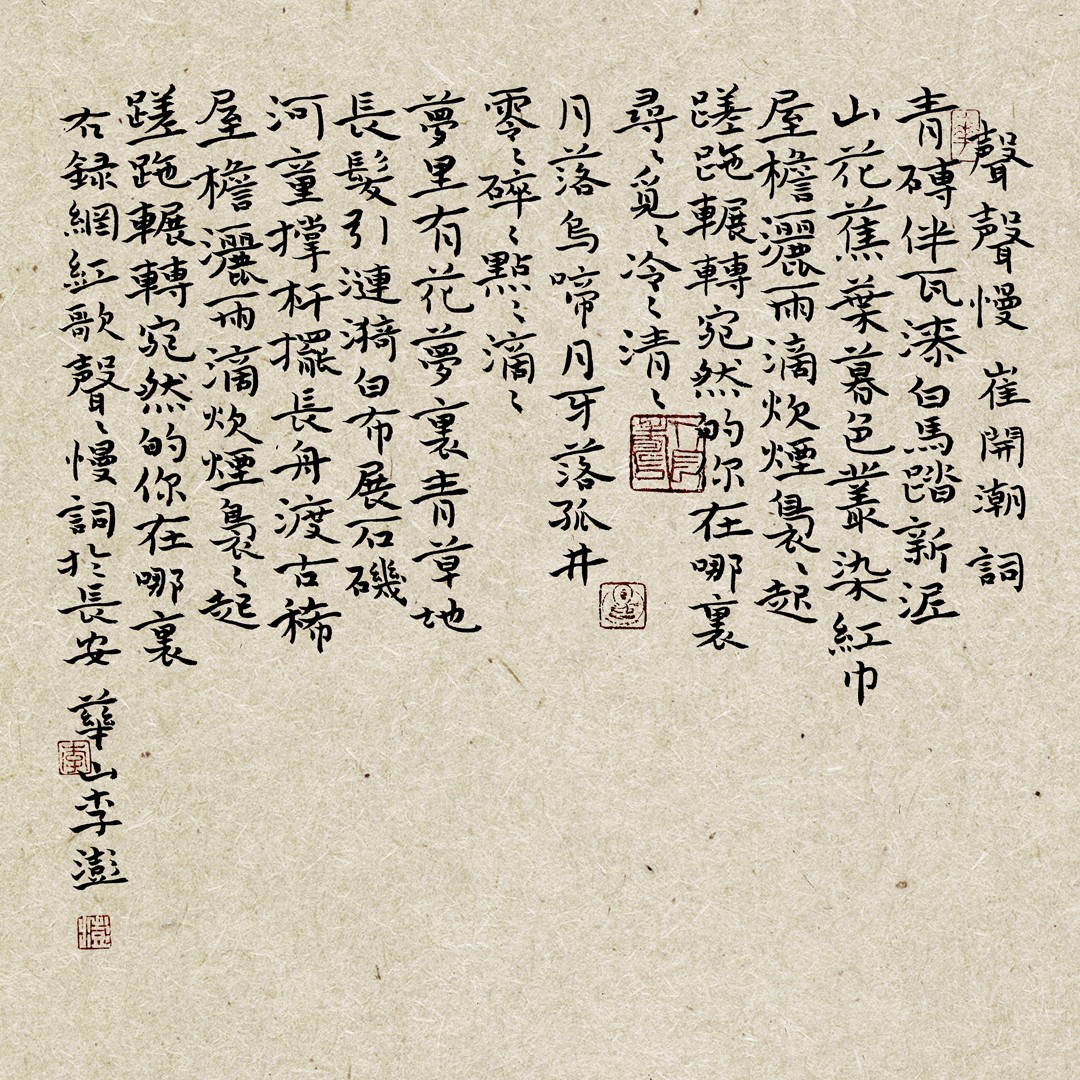 聲聲慢 崔開潮 詞
青磚伴瓦漆白馬踏新泥
山花蕉葉暮色叢染紅巾
屋檐灑雨滴炊煙裊〻起
蹉跎輾轉宛然的你在哪裏
尋〻覓〻冷〻清〻
月落烏啼月牙落孤井
零〻碎〻點〻滴〻
夢里有花夢裏青草地
長髮引漣漪白布展石磯
河童撑杆擺長舟渡古稀
屋檐灑雨滴炊煙裊〻起
蹉跎輾轉宛然的你在哪裏
右録網紅歌聲〻慢詞於長安 華山李澎